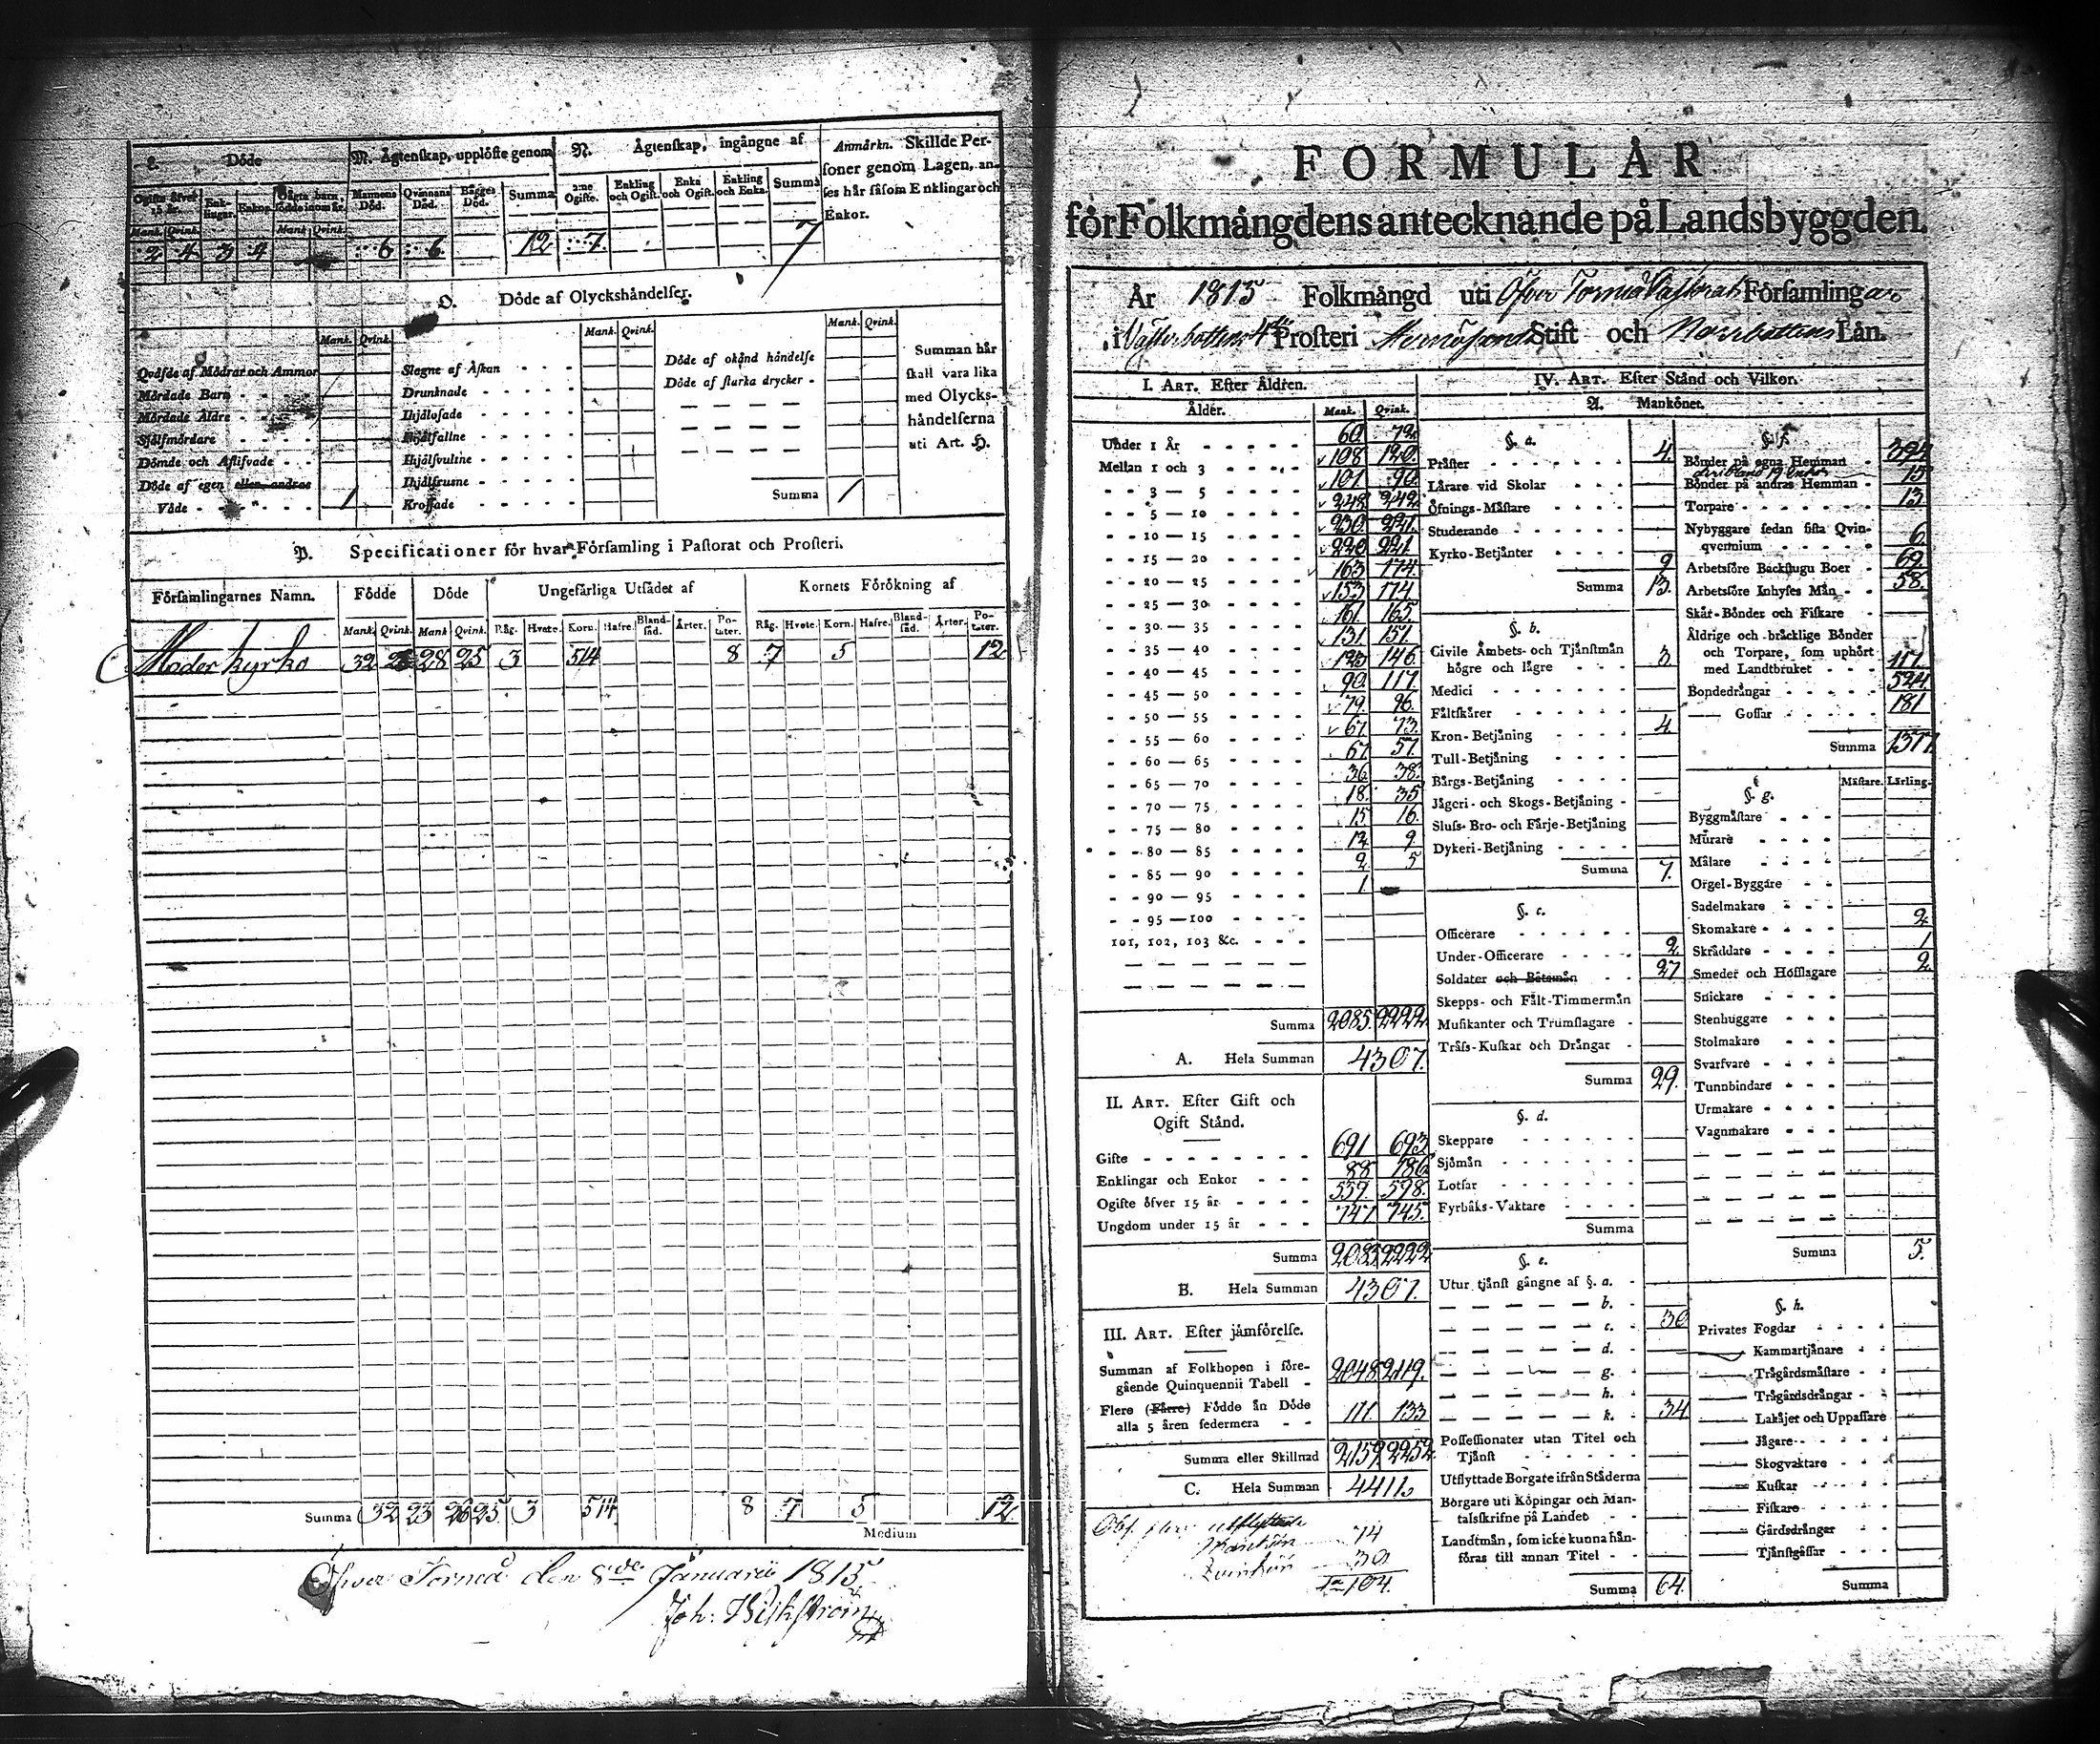 L. Döde
M. Ägtenskap, upplöste genom
N. Ägtenskap, ingångne af
Anmärkn. Skillde Personer genom Lagen, anses här såsom Enklingar och Enkor.
Ogifte öfver 15 år. Enklingar. Enkor. Oägta barn, födde inom år.
Mannens Död. Qvinnans Död. Bägges Död. Summa
2:ne Ogifte. Enkling och Ogift. Enka och Ogift. Enkling och Enka. Summa
Mank. Qvink. Mank. Qvink.
2 4 3 4 6 6 12 7 7
O. Döde af Olyckshändelser.
Mank. Qvink. Mank. Qvink. Mank. Qvink.
Qväfde af Mödrar och Ammor
Mördade Barn
Mördade Äldre
Sjelfmördare
Dömde och Aflifvade
Döde af egen eller andras
Våde 1
Slagne af Åskan
Drunknade
Ihjälosade
Ihjälfallne
Ihjälsvultne
Ihjälfrusne
Krossade
Döde af okänd händelse
Döde af starka drycker
Summa 1
Summan här
skall vara lika
med Olycks-
händelserna
uti Art. H.
P. Specificationer för hvar Församling i Pastorat och Prosteri.
Församlingarnes Namn. Födde Döde Ungefärliga Utsädet af Kornets Förökning af
Mank. Qvink. Mank. Qvink. Råg. Hvete. Korn. Hafre. Blandsäd. Ärter. Potater. Råg. Hvete. Korn. Hafre. Blandsäd. Ärter. Potater.
Moderkyrko 32 28 25 3 514 8 7 5 12
Summa 32 23 25 3 514 8 7 5 12
Medium
Öfver Torneå den 8de Januarii 1815
Joh.
FORMULÄR
för Folkmängdens antecknande på Landsbyggden.
År 1815 Folkmängd uti Öfver Torneå Pastorats Församlingar
i Västerbottens 4de Prosteri Hernösands Stift och Norrbottens Län.
I. ART. Efter Åldren.
Ålder. Mank. Qvink.
Under 1 År 60 72
Mellan 1 och 3 108 120
3 — 5 101 90
5 — 10 248 242
10 — 15 230 221
15 — 20 220 221
20 — 25 163 174
25 — 30 153 174
30 — 35 161 165
35 — 40 131 151
40 — 45 123 146
45 — 50 90 117
50 — 55 79 96
55 — 60 67 73
60 — 65 67 57
65 — 70 36 38
70 — 75 18 35
75 — 80 15 16
80 — 85 12 9
85 — 90 2 5
90 — 95 1
95 — 100
101, 102, 103 &c.
Summa 2085 2222
A. Hela Summan 4307.
II. ART. Efter Gift och
Ogift Stånd.
Gifte 691 693
Enklingar och Enkor 88 186
Ogifte öfver 15 år 559 598
Ungdom under 15 år 747 745
Summa 2085 2222
B. Hela Summan 4307.
III. ART. Efter jämförelse.
Summan af Folkhopen i före-
gående Quinquennii Tabell 2048 2119.
Flere (Färre) Födde än Döde
alla 5 åren sedermera 111 133
Summa eller Skillnad 2159 2252
C. Hela Summan 4411.
Obs. flere utflyttade
Mankön 74
Qvinkön 30
Sa 104.
IV. ART. Efter Stånd och Vilkor.
A. Mankönet.
§. a.
Präster 4
Lärare vid Skolar
Öfnings-Mästare
Studerande
Kyrko-Betjänter 9
Summa 13.
§. b.
Civile Ämbets- och Tjänstmän
högre och lägre 3
Medici
Fältskärer
Kron-Betjäning 4
Tull-Betjäning
Bärgs-Betjäning
Jägeri- och Skogs-Betjäning
Sluss- Bro- och Färje-Betjäning
Dykeri-Betjäning
Summa 7.
§. c.
Officerare
Under-Officerare 2
Soldater och Båtsmän 27
Skepps- och Fält-Timmermän
Musikanter och Trumslagare
Träss-Kuskar och Drängar
Summa 29.
§. d.
Skeppare
Sjömän
Lotsar
Fyrbåks-Vaktare
Summa
§. e.
Utur tjänst gångne af §. a.
b.
c. 30
d.
g.
h.
k. 34
Possessionater utan Titel och
Tjänst
Utflyttade Borgare ifrån Städerna
Borgare uti Köpingar och Man-
talsskrifne på Landet
Landtmän, som icke kunna hän-
föras till annan Titel
Summa 64.
§. f.
Bönder på egna Hemman 394
deribland 19 Enkor
Bönder på andras Hemman 15
Torpare 13
Nybyggare sedan sista Qvin-
qvennium 6
Arbetsföre Backstugu Boer 69
Arbetsföre Inhyses Män 58.
Skär-Bönder och Fiskare
Äldrige och bräcklige Bönder
och Torpare, som uphört
med Landtbruket 117
Bondedrängar 524
Gossar 181
Summa 1377.
Mästare. Lärling.
§. g.
Byggmästare
Murare
Målare
Orgel-Byggare
Sadelmakare
Skomakare 2
Skräddare 1
Smeder och Hofslagare 2
Snickare
Stenhuggare
Stolmakare
Svarfvare
Tunnbindare
Urmakare
Vagnmakare
Summa 5.
§. h.
Privates Fogdar
Kammartjänare
Trägårdsmästare
Trägårdsdrängar
Lakäjer och Uppassare
Jägare
Skogvaktare
Kuskar
Fiskare
Gårdsdrängar
Tjänstgåssar
Summa